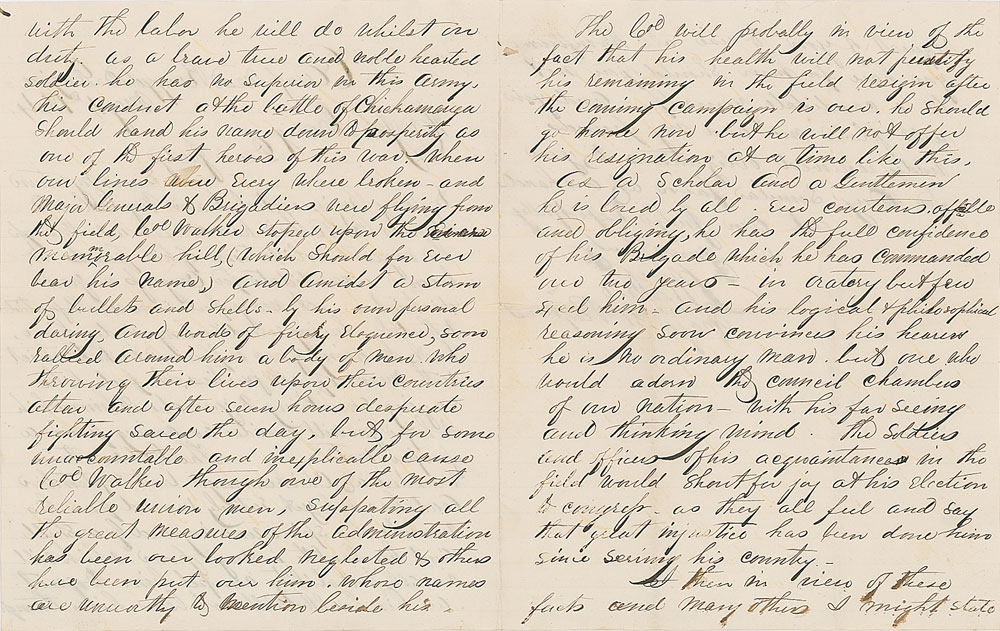 with the labor he will do whilst on
duty. as a brave true and noble hearted
soldier. he has no superior in this army,
his conduct at the battle of Chickamauga
should hand his name down to posperity as
one of the first heroes of this war. When
our lines were Every where broken - and
Major Generals & Brigadiers were flying from
the field, Col Walker stoped upon the
memorable hill, (which should for ever
bear his name,) and amidst a storm
of bullets and shells - by his own personal
daring, and words of firey Eloquence, soon
rallied around him a body of men. who
throwing their lives upon their Countries
altar and after seven hours desperate
fighting saved the day, but for some
unaccountable and inexplicable cause
Col Walker though one of the most
reliable union men, supporting all
the great measures of the administration
has been over looked neglected & others
have been put over him. whose names
are unworthy to mention beside his.
The Col will probably in view of the
fact that his health will not justify
his remaining in the field resign after
the coming campaign is over. he should
go home now but he will not offer
his resignation at a time like this,
As a Scholar and a Gentlemen
he is loved by all - Ever courteous. affable
and obliging, he has the full confidence
of his Brigade which he has commanded
over two years - in oratory but few
Excel him - and his logical & philosophical
reasoning soon convinces his hearers
he is no ordinary man. but one who
would adorn the council chambers
of our nation - with his far seeing
and thinking mind. The Soldiers
and officers of his acquaintances in the
field would shout for joy at his Election
to congress - as they all feel and say
that great injustice has been done him
since serving his country -
then in view of these
facts and many others I might state